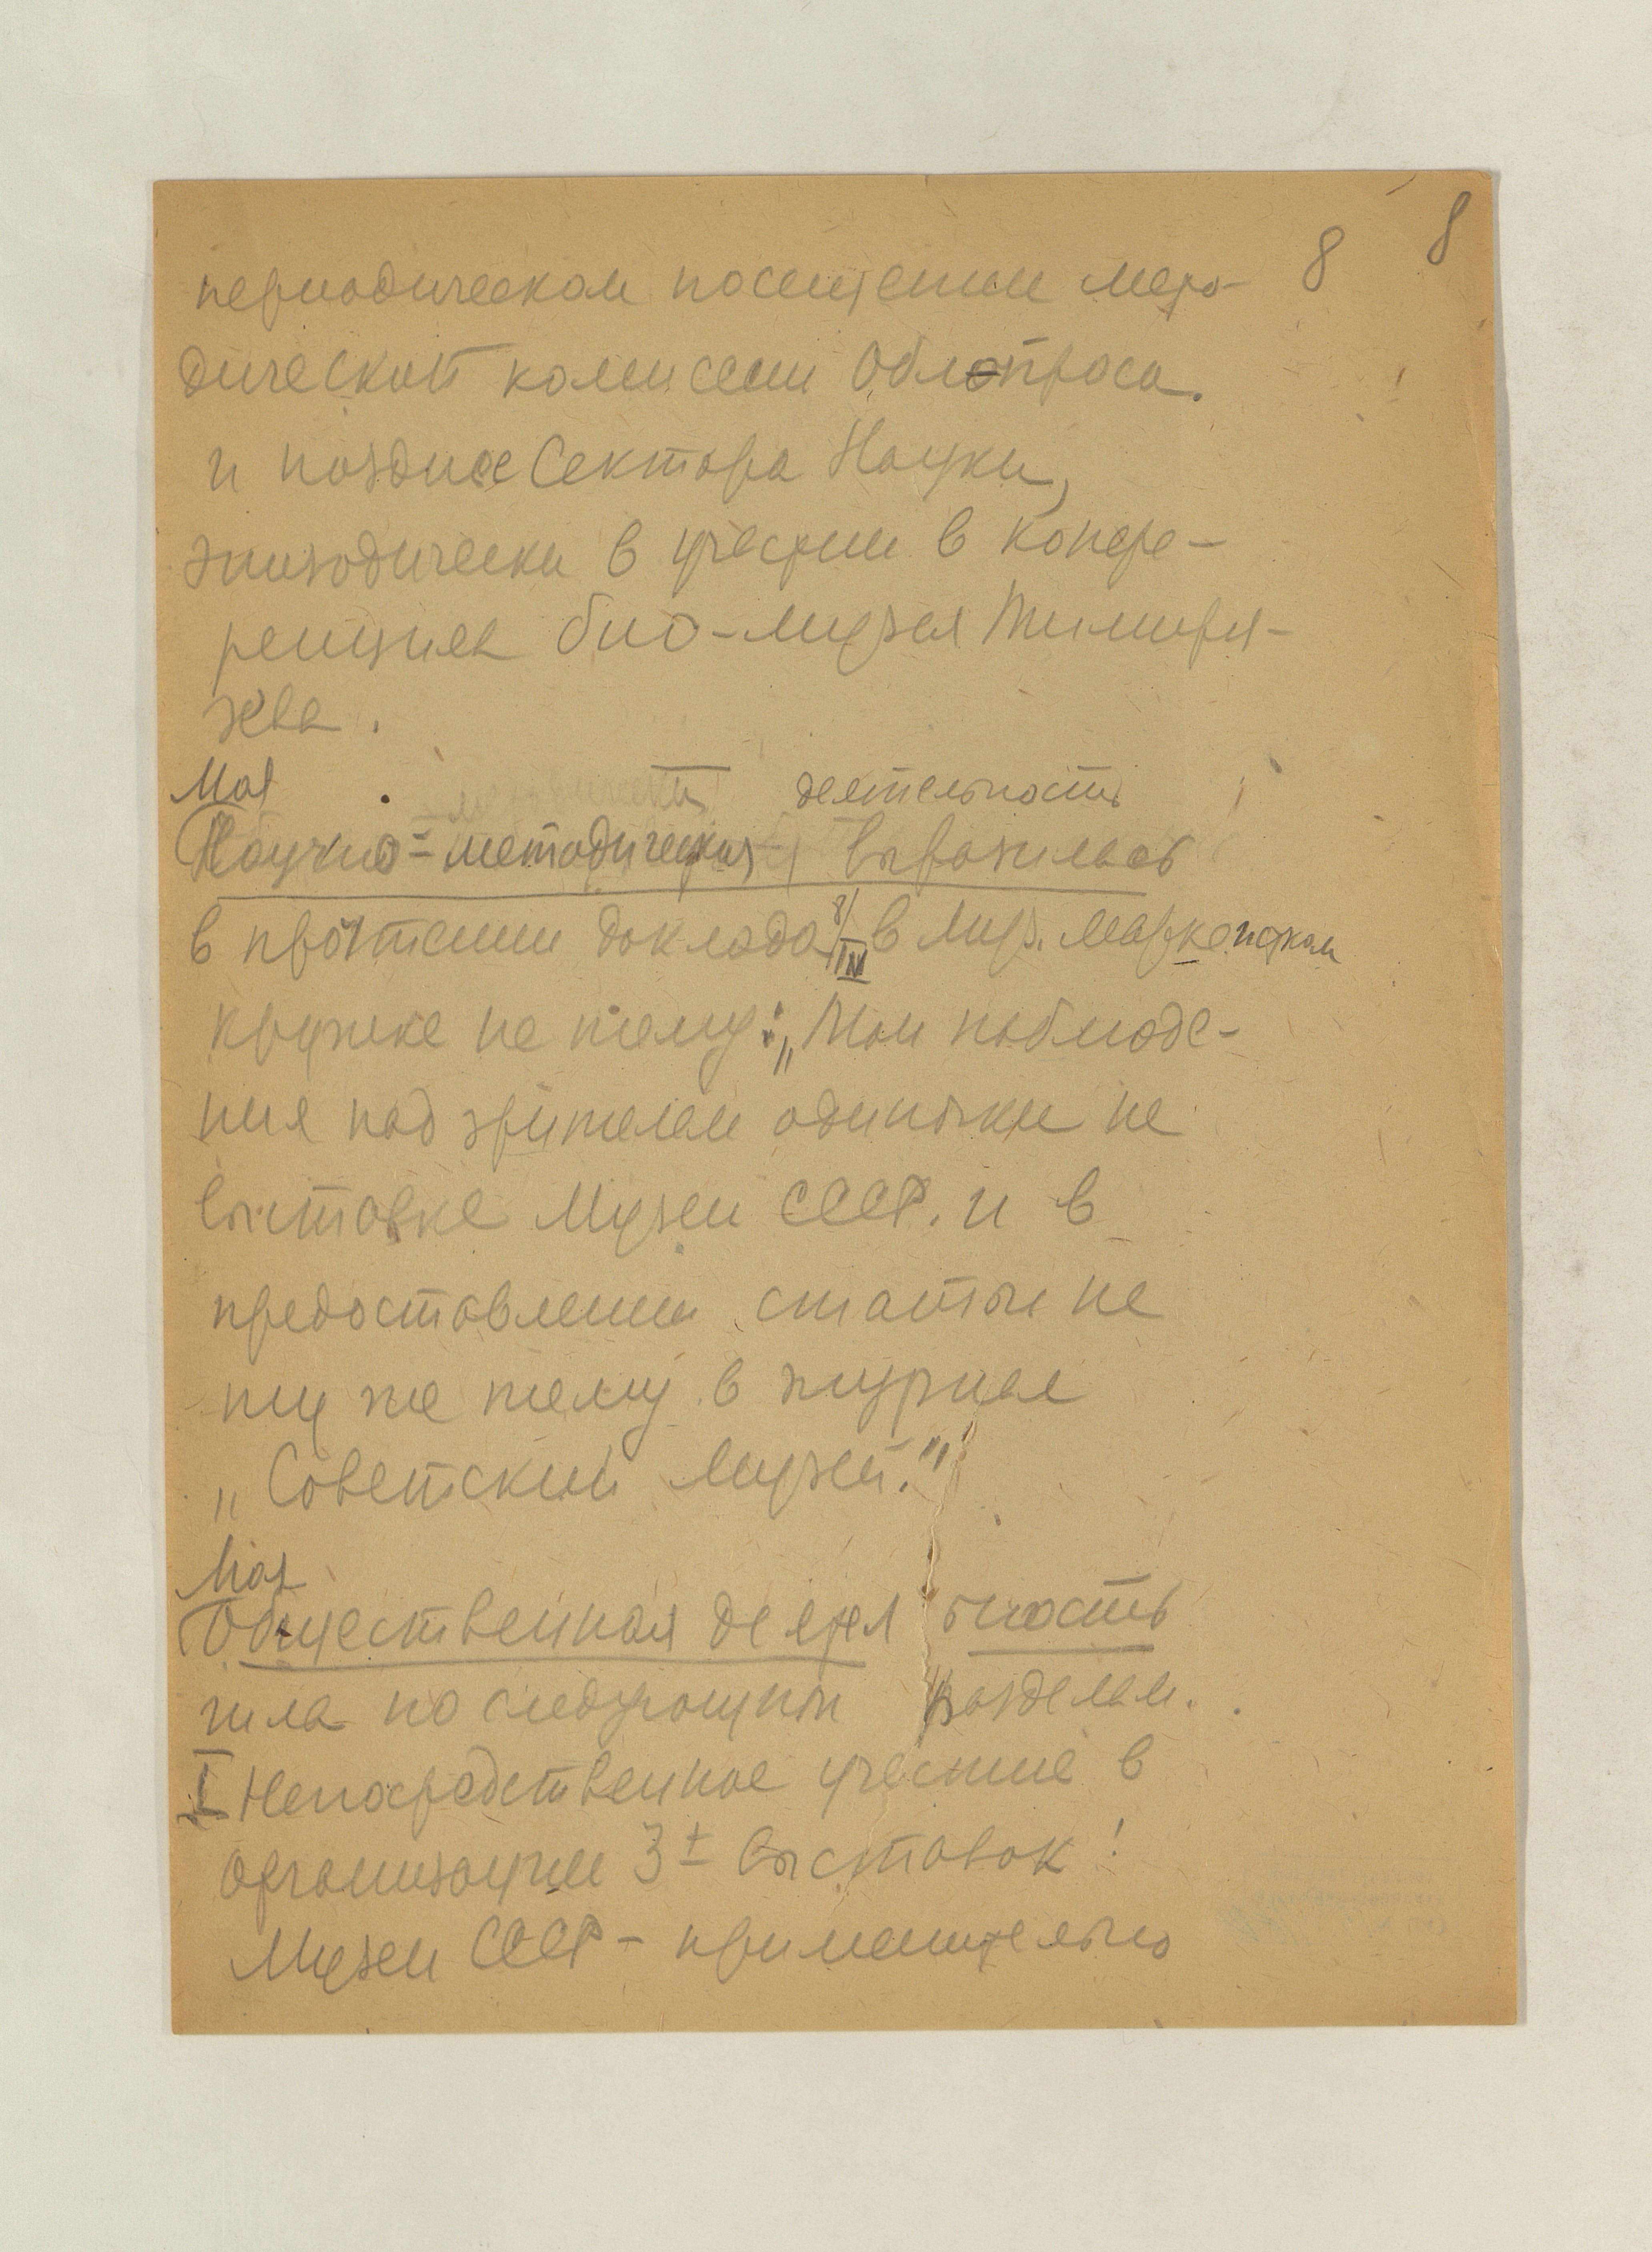 8 8
периодическом посещении мето-
дической комиссии Облопроса.
и позднее Сектора Науки,
эпизодически в участии в конфе-
ренциях био-музея Тимиря-
зева.
Моя деятельность
Научно-методическая выразилась
в прочтении доклада 8/IV в Муз. марксистском
кружке на тему: „Мои наблюде-
ния над зрителем одиночкой на
выставке Музеи СССР. и в
предоставлении статьи на
ту же тему в журнал
„Советский Музей."
Моя
Общественная деятельность
шла по следующим разделам.
I Непосредственное участие в
организации 3х выставок!
Музеи СССР - применительно